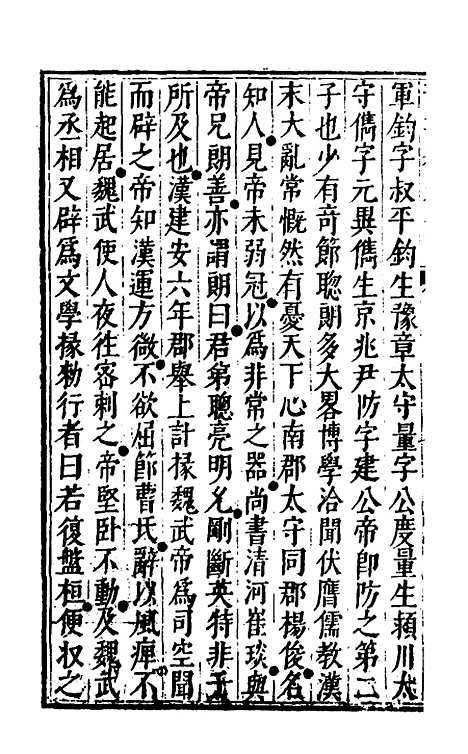 軍鈞字叔平鈞生豫章太守量字公度量生潁川太
守儁字元異儁生京兆尹防字建公帝卽防之第二
子也少有竒節聦朗多大畧博學洽聞伏膺儒教漢
末大亂常慨然有憂天下心南郡太守同郡楊俊名
知人見帝未弱冠以爲非常之器尚書清河崔琰與
帝兄朗善亦謂朗曰君弟聰亮明允剛斷英特非子
所及也漢建安六年郡舉上計掾魏武帝爲司空聞
而辟之帝知漢運方微不欲屈節曹氏辭以風痺不
能起居魏武使人夜徃宻刺之帝堅卧不動及魏武
爲丞相又辟爲文學掾勑行者曰若復盤桓便収之